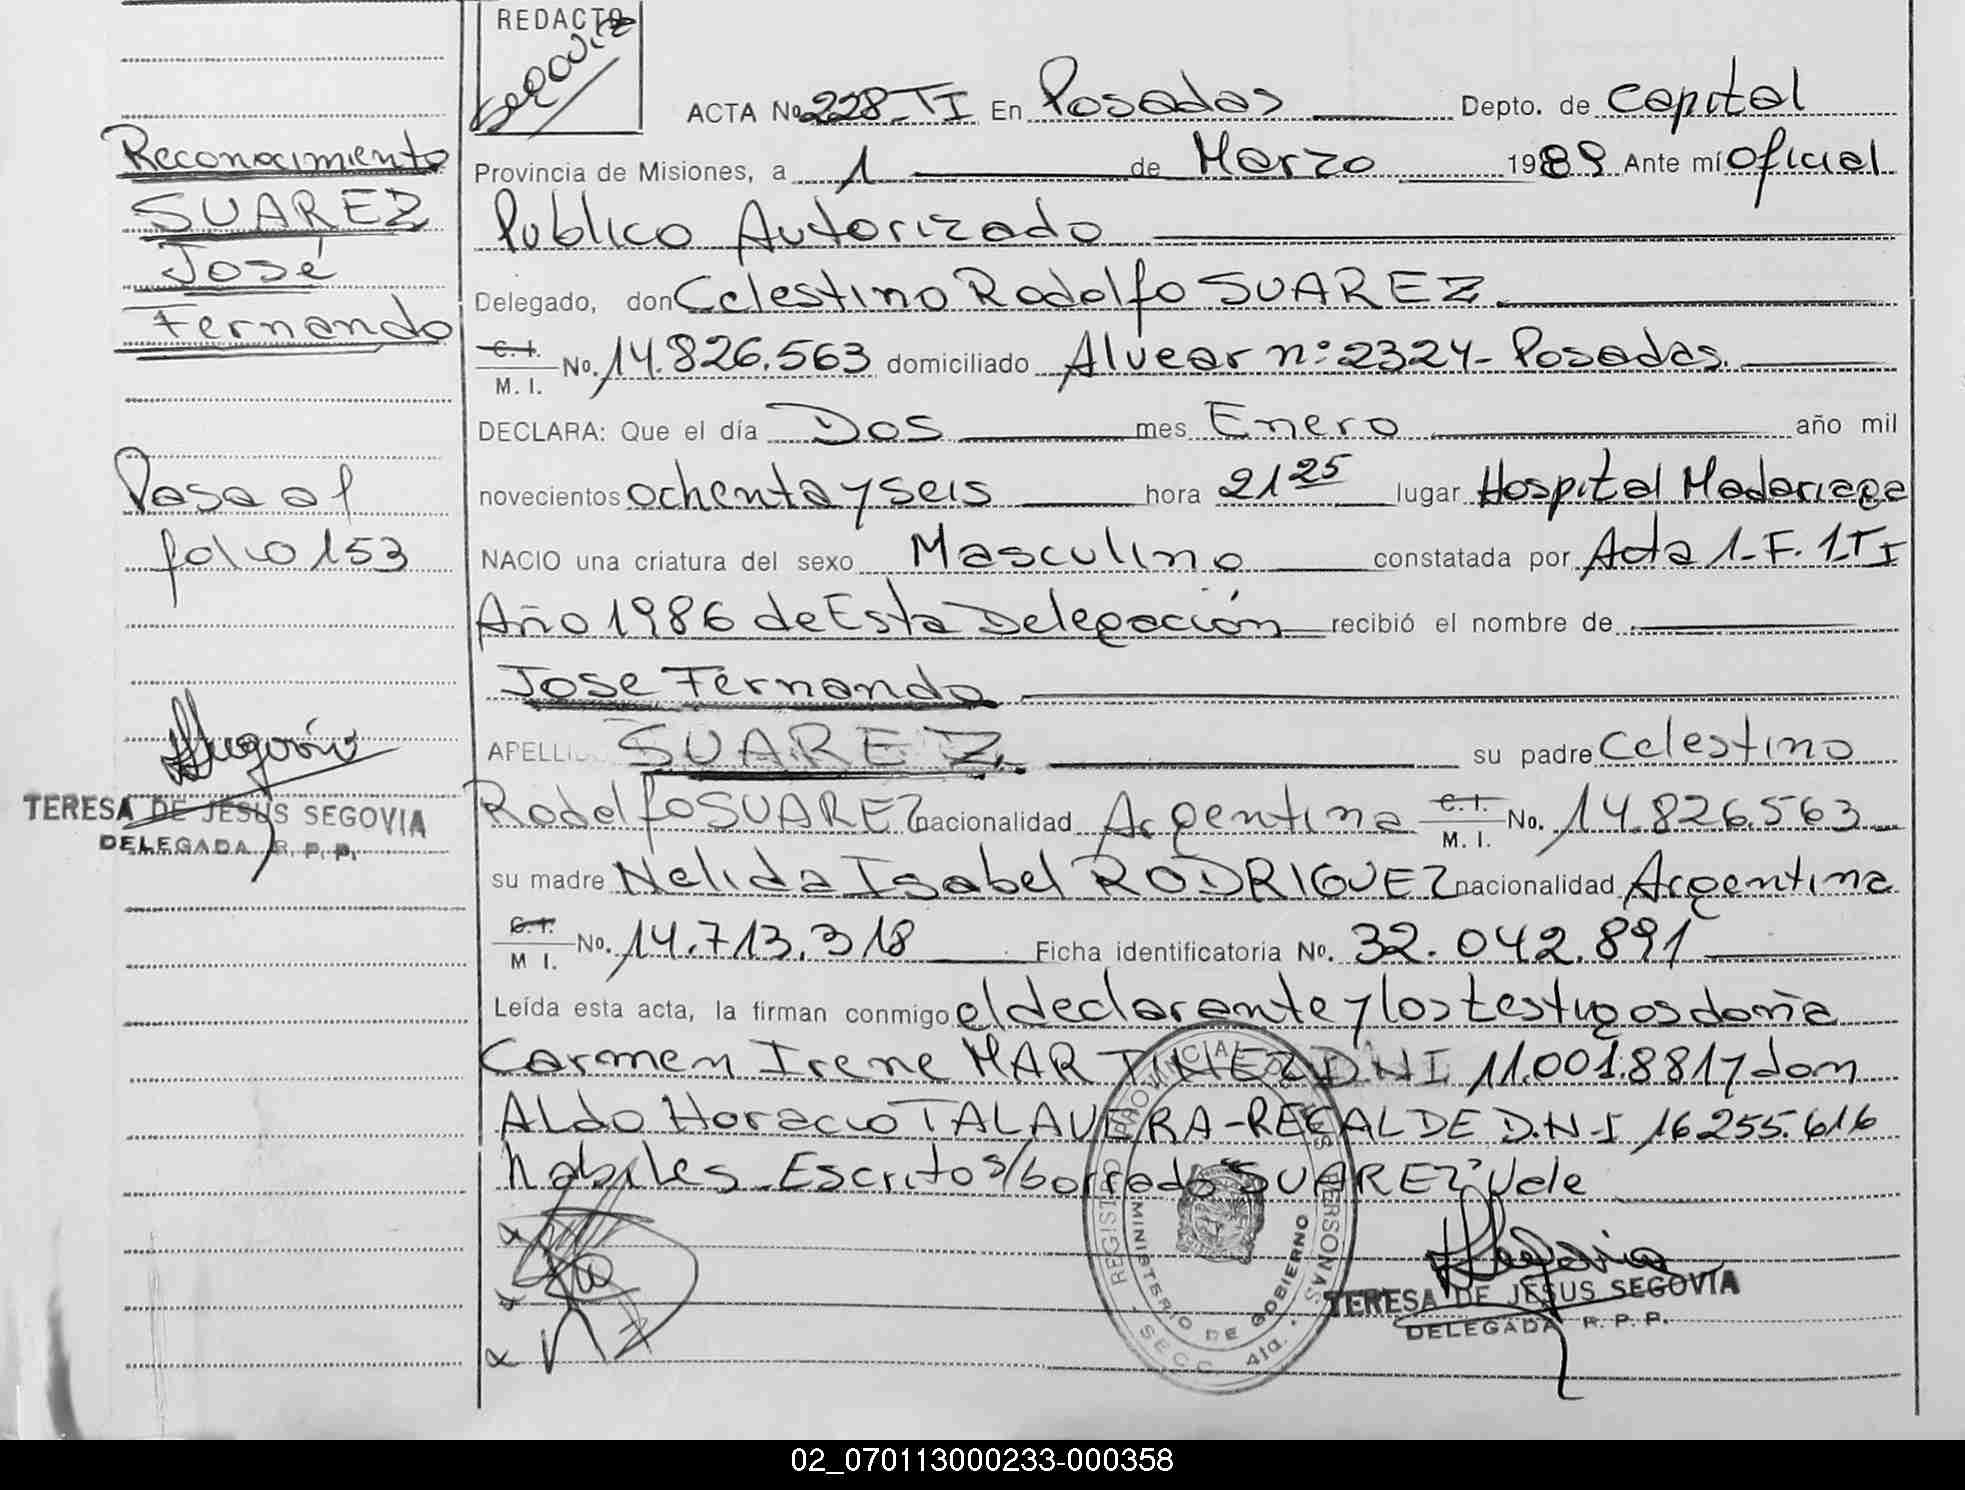 REDACTO
Segovia
ACTA No 228-TI En Posadas Depto. de Capital
Provincia de Misiones, a 1 de Marzo 1989 Ante mí Oficial
Publico Autorizado
Delegado, don Celestino Rodolfo SUAREZ.
C. I. / M. I. No. 14.826.563 domiciliado Alvear nº 2324- Posadas.
DECLARA: Que el día Dos mes Enero año mil
novecientos ochenta y seis hora 21 25 lugar Hospital Madariaga
NACIO una criatura del sexo Masculino constatada por Acta 1-F. 1 TI
Año 1986 de Esta Delegación recibió el nombre de
Jose Fernando
APELLI SUAREZ. su padre Celestino
Rodolfo SUAREZ nacionalidad Argentina C. I. / M. I. No. 14.826.563
su madre Nelida Isabel RODRIGUEZ nacionalidad Argentina
C. I. / M I. No. 14.713.318 Ficha identificatoria No. 32.042.891
Leída esta acta, la firman conmigo el declarante y los testigos doña
Carmen Irene MARTINEZ D.N.I 11.001.881 y don
Aldo Horacio TALAVERA-RECALDE D.N-I 16.255.616
habiles. Escrito s/borrado "SUAREZ" Vale
Reconocimiento
SUAREZ
José
Fernando
Pasa al
folio 153
Segovia
TERESA DE JESUS SEGOVIA
DELEGADA R. P. P.
REGISTRO PROVINCIAL DE LAS PERSONAS
MINISTERIO DE GOBIERNO
SECC. 4ta.
Segovia
TERESA DE JESUS SEGOVIA
DELEGADA R. P. P.
02_070113000233-000358